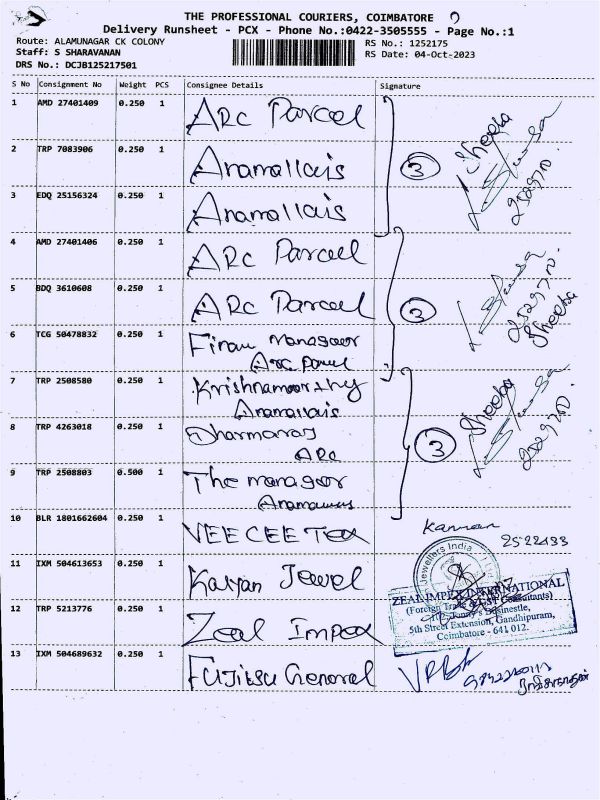 THE PROFESSIONAL COURIERS, COIMBATORE
Delivery Runsheet - PCX - Phone No.:0422-3505555 - Page No.:1
Route: ALAMUNAGAR CK COLONY
RS No.: 1252175
Staff: S SHARAVANAN
RS Date: 04-Oct-2023
DRS No.: DCJB125217501
S No Consignment No Weight PCS Consignee Details Signature
1 AMD 27401409 0.250 1 ARC Parcel
Sheeba
252970
2 TRP 7083906 0.250 1 Anamallais
3
3 EDQ 25156324 0.250 1 Anamallais
4 AMD 27401406 0.250 1 ARC Parcel
5 BDQ 3610608 0.250 1 ARC Parcel
3
252970
Sheeba
6 TCG 50478832 0.250 1
ARC Parcel
7 TRP 2508580 0.250 1 Krishnamoorthy
Anamallais
Sheeba
252970
8 TRP 4263018 0.250 1 Dharmaraj
ARC
3
9 TRP 2508803 0.500 1 The manager
10 BLR 1801662604 0.250 1 VEE CEE Tex
Kannan
2522433
11 IXM 504613653 0.250 1 Kalyan Jewel
Jewellers India
12 TRP 5213776 0.250 1 Zeal Impex
ZEAL IMPEX INTERNATIONAL
(Foreign Trade & GST Consultants)
5th Street Extension, Gandhipuram,
Coimbatore - 641 012.
13 IXM 504689632 0.250 1 Fujitsu General